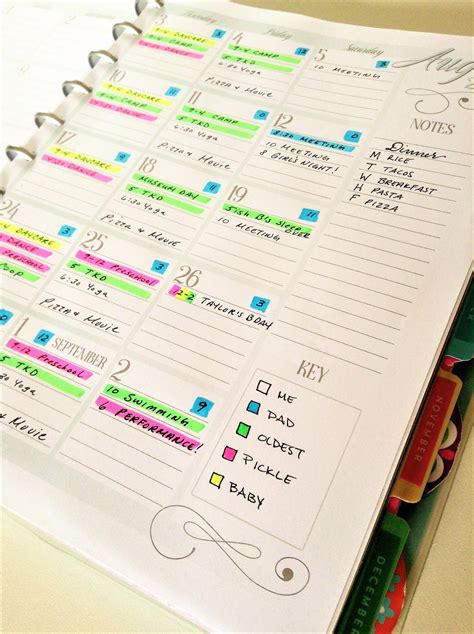 Friday
Saturday
Aug
3
9-4 DAYCARE
9-4 CAMP
4
9-4 CAMP
5 TKD
6:30 Yoga
Pizza & Movie
5
10 MEETING
10
9-4 DAYCARE
9-4 CAMP
5 TKD
6:30 Yoga
Pizza & Movie
12
8:30 MEETING
10 MEETING
8 GIRL'S NIGHT!
17
9-4 DAYCARE
18
MUSEUM DAY
5 TKD
6:30 Yoga
Pizza & Movie
19
10 MEETING
11
24
9-4 DAYCARE
PRESCHOOL
25
9-12 Preschool
5 TKD
6:30 Yoga
Pizza & Movie
3
26
12-2 TAYLOR'S BDAY
3
1 SEPTEMBER
9-12 Preschool
5 TKD
6:30 Yoga
& Movie
2
10 SWIMMING
6 PERFORMANCE!
9
NOTES
Dinner
M RICE
T TACOS
W BREAKFAST
H PASTA
F PIZZA
KEY
ME
DAD
OLDEST
PICKLE
BABY
NOVEMBER
DECEMBER